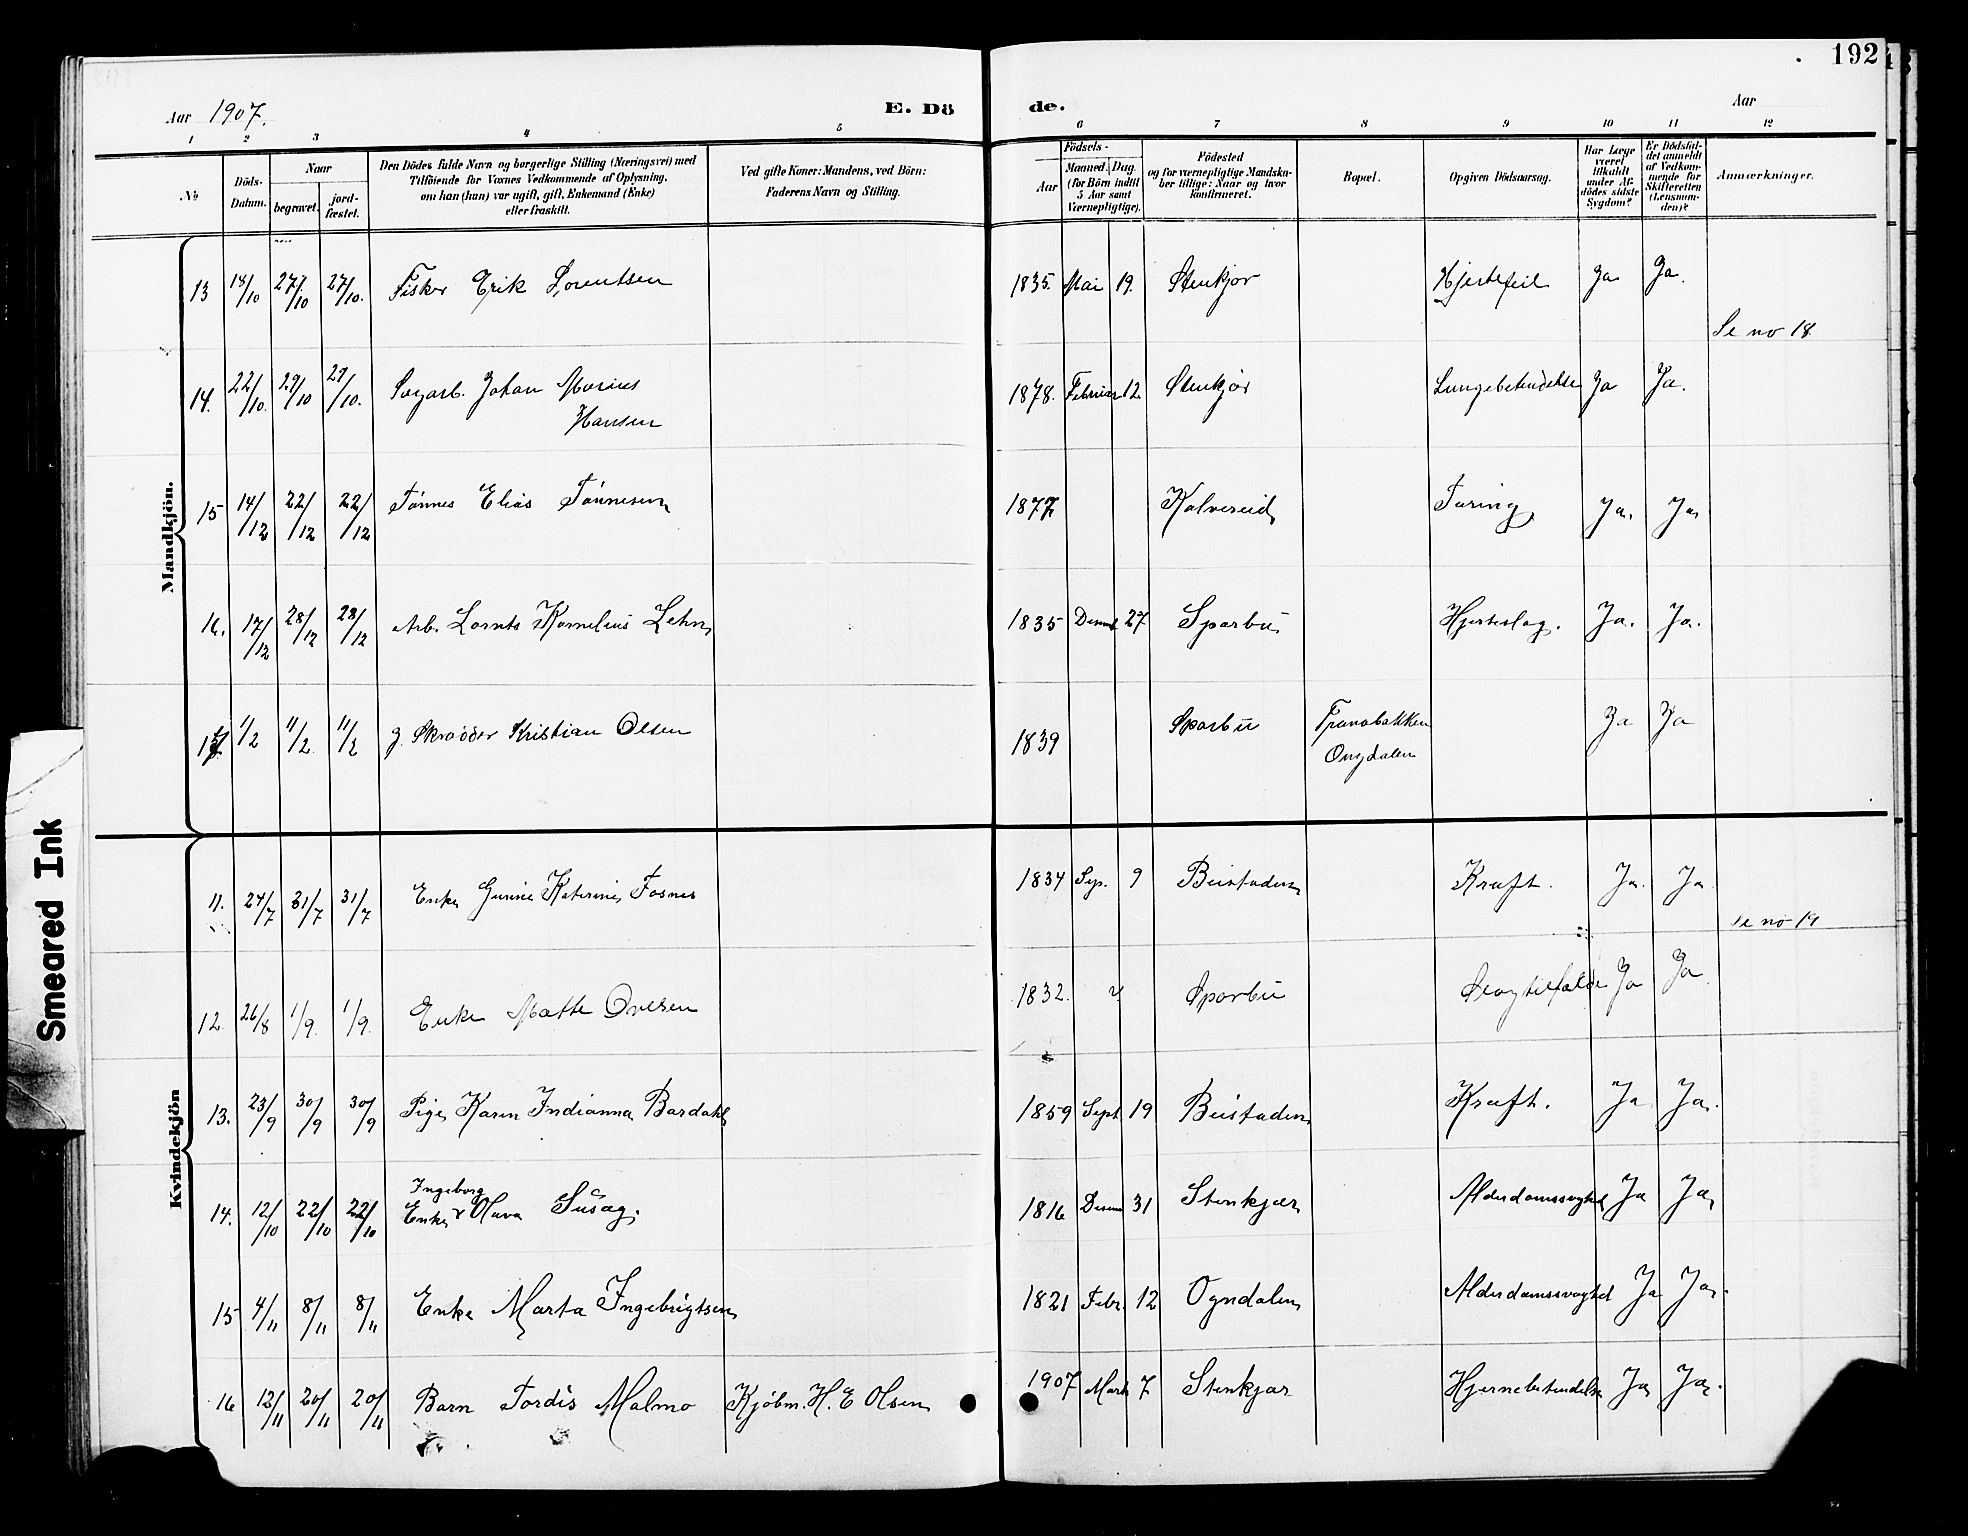 192
Aar 1907.
E. Dö de.
Aar
1 2 3 4 5 6 7 8 9 10 11 12
No
Döds-Datum.
Naar
begravet.
jord-fæstet.
Den Dödes fulde Navn og borgerlige Stilling (Næringsvei) med
Tilföiende for Voxnes Vedkommende af Oplysning,
om han (hun) var ugift, gift, Enkemand (Enke)
eller fraskilt.
Ved gifte Koner: Mandens, ved Börn:
Faderens Navn og Stilling.
Födsels-
Aar
Maaned. Dag.
(for Börn indtil
5 Aar samt
Værnepligtige).
Födested
og for værnepligtige Mandska-
ber tillige: Naar og hvor
konfirmeret.
Bopæl.
Opgiven Dödsaarsag.
Har Læge
været
tilkaldt
under Af-
dödes sidste
Sygdom?
Er Dödsfal-
det anmeldt
af Vedkom-
mende for
Skifteretten
(Lensman-
den)?
Anmærkninger.
Mandkjön.
13 18/10 27/10 27/10. Fisker Erik Lorentsen 1835. Mai 19. Stenkjær Hjertefeil Ja Ja.
Se no 18.
14. 22/10. 29/10 29/10. Sagarb. Johan Marius 1878. Februar 12. Stenkjær Lungebetændelse Ja Ja.
Hansen
15 14/12 22/12 22/12 Tønnes Elias Tønnesen 1877. Kolvereid Tæring Ja. Ja
16. 17/12 28/12 28/12 Arb. Lornts Kornelius Lehn 1835 Decemb 27 Sparbu Hjerteslag. Ja. Ja.
17 1/2 11/2. 11/2 g. Skrædder Kristian Olsen 1839 Sparbu Tranabakken Ja Ja
Ongdalen
Kvindekjön
11. 24/7 31/7 31/7 Enke Katerine Fosnes 1834 Sep. 9 Beistaden Kræft. Ja. Ja
se no 19
12. 26/8 1/9. 1/9. Enke Matte Ovesen 1832. Sparbu Slagtilfælde Ja Ja
13. 23/9 30/9 30/9 Pige Karen Indianna Bardahl 1859 Sept 19 Beistaden Kræft. Ja Ja.
Ingeborg
14. 12/10 22/10 22/10 Enke Olava Susæg. 1816 Decem 31 Stenkjær Alderdomssvaghed Ja Ja
15 4/11 8/11 8/11 Enke Marta Ingebrigtsen 1821 Febr. 12 Ogndalen Alderdomssvaghed Ja Ja.
16 12/11 20/11 20/11 Barn Tordis Malmo Kjøbm. H. E Olsen 1907 Marts 7 Stenkjær Hjernebetændelse Ja Ja.
Smeared Ink